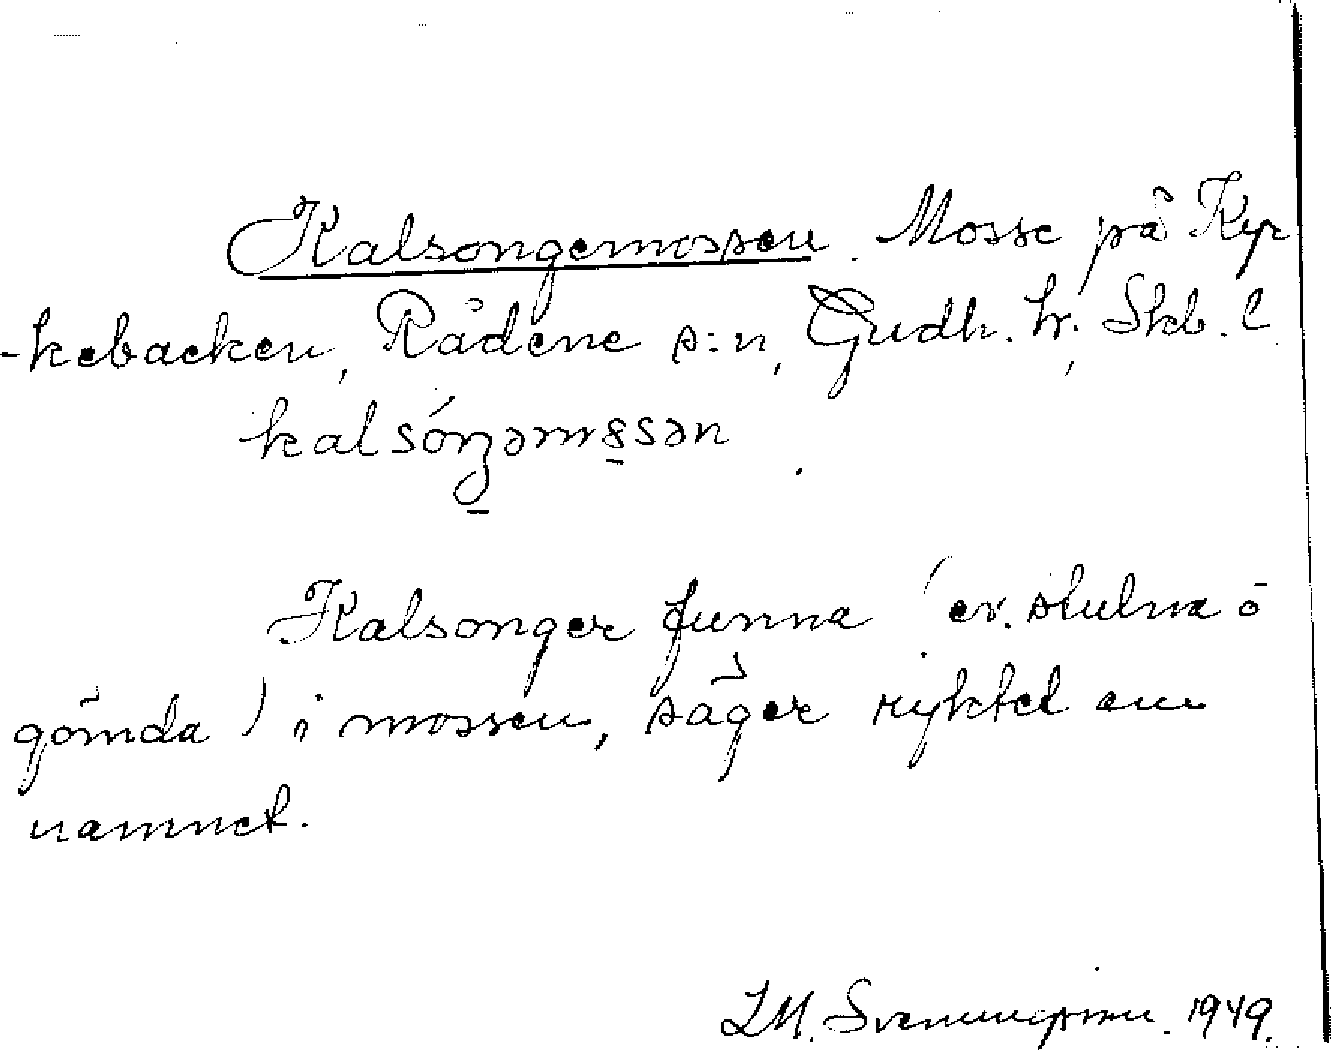 Kalsongemossen. Mosse på Kyr
-kebacken, Rådene s:n, Gudh. hr, Skb. l.
kalsóŋəmꞩsən
Kalsonger funna (ev. stulna o
gömda) i mossen, säger ryktet om
namnet.
LM. Svenungsson. 1949.